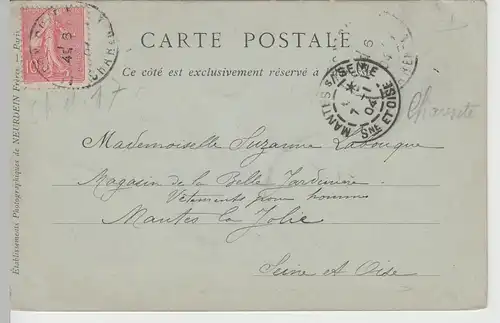 CARTE POSTALE
Ce côté est exclusivement réservé à
MANTES S/ SEINE
7
04
SNE ET OISE
Charente
Mademoiselle Suzanne
Magasin de la Belle Jardinière
Vêtements pour hommes
Mantes la Jolie
Seine et Oise
Établissements Photographiques de NEURDEIN Frères. — Paris